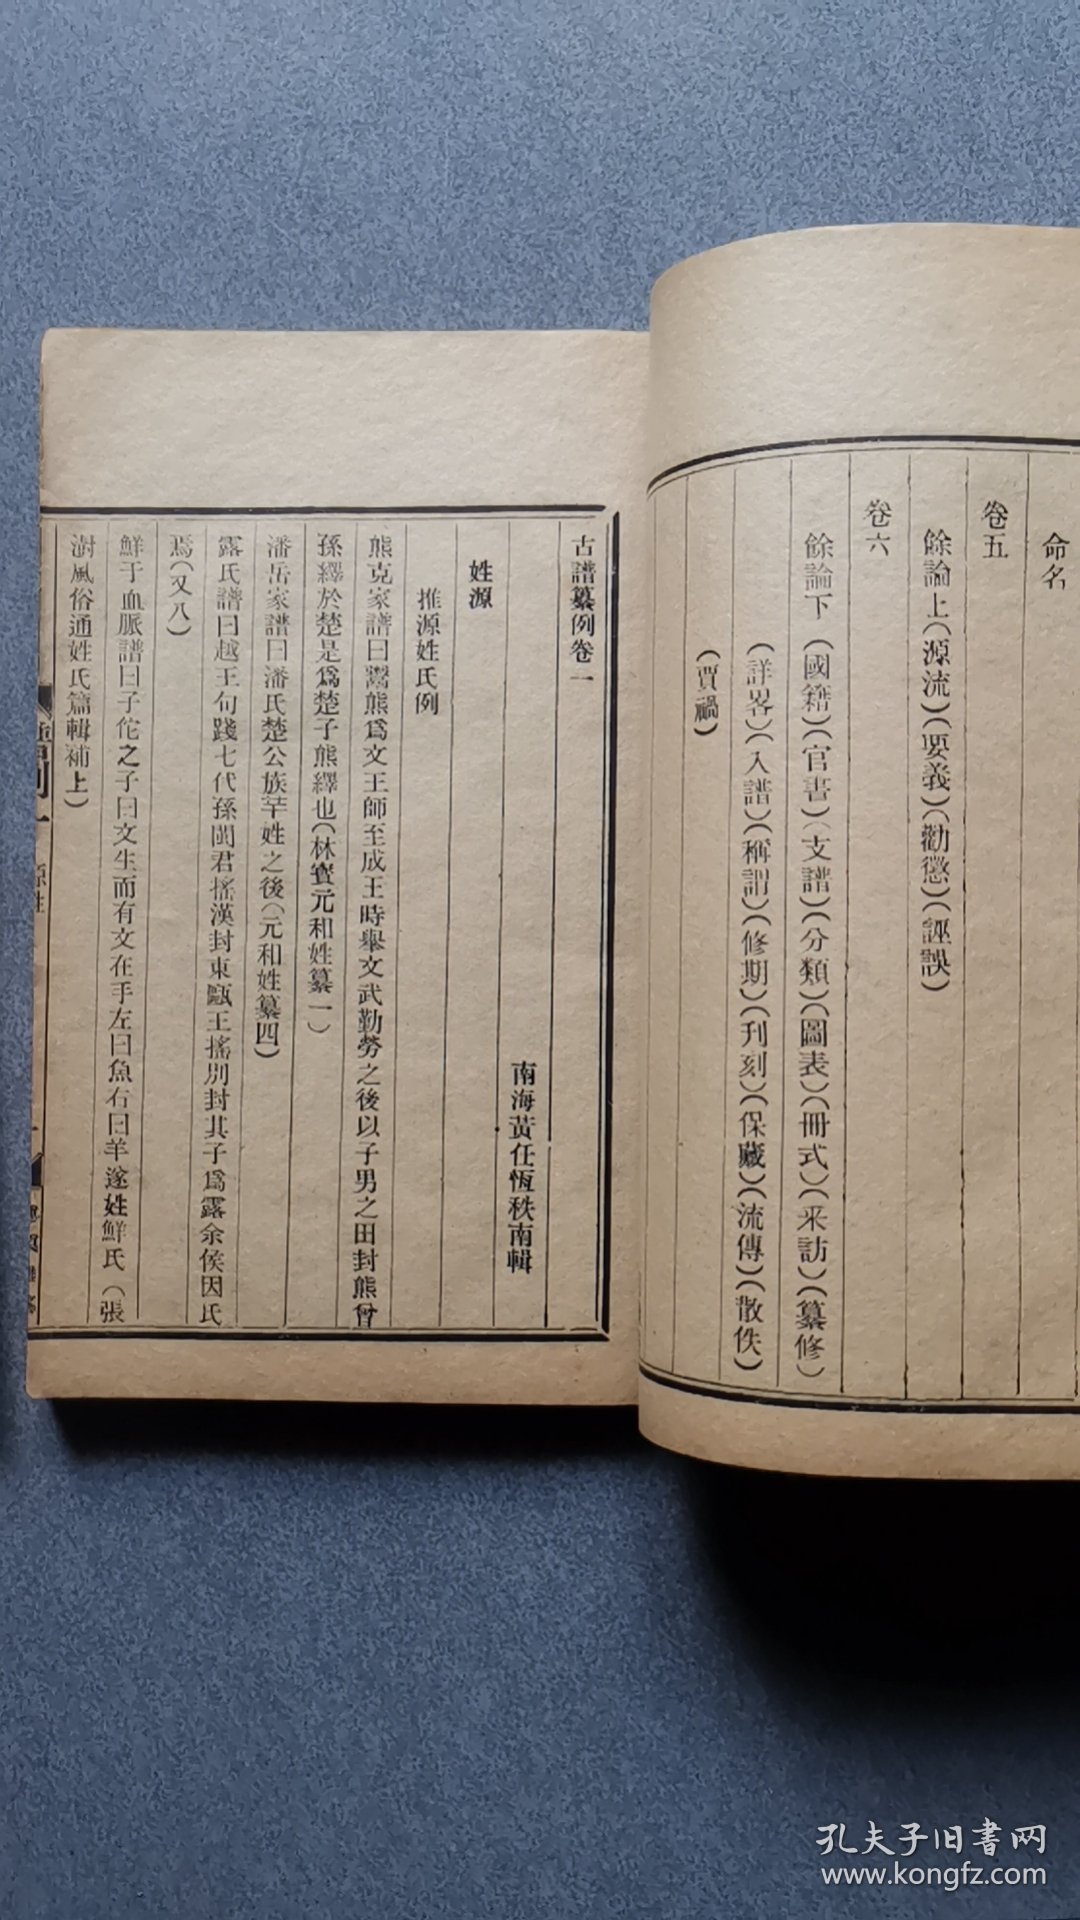 命名
卷五
餘論上(源流)(要義)(勸懲)(誣誤)
卷六
餘論下(國籍)(官書)(支譜)(分類)(圖表)(冊式)(采訪)(纂修)
(詳畧)(入譜)(稱謂)(修期)(刋刻)(保藏)(流傳)(散佚)
(賈禍)
古譜纂例卷一
南海黃任恆秩南輯
姓源
推源姓氏例
熊克家譜曰鬻熊爲文王師至成王時舉文武勤勞之後以子男之田封熊曾
孫繹於楚是爲楚子熊繹也(林寶元和姓纂一)
潘岳家譜曰潘氏楚公族芊姓之後(元和姓纂四)
露氏譜曰越王句踐七代孫閩君搖漢封東甌王搖別封其子爲露余侯因氏
焉(又八)
鮮于血脈譜曰子佗之子曰文生而有文在手左曰魚右曰羊遂姓鮮氏(張
澍風俗通姓氏篇輯補上)
譜例一
孔夫子旧書网
www.kongfz.com